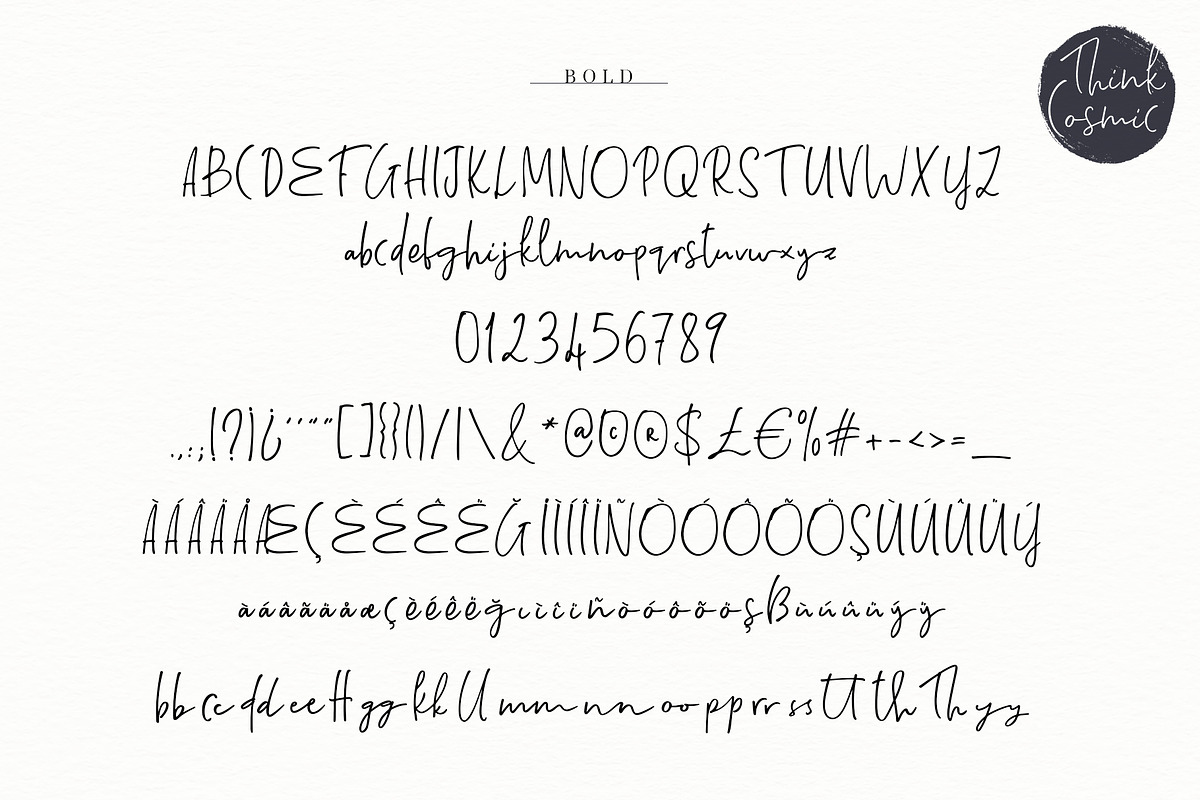 BOLD
Think
Cosmic
ABCDEFGHIJKLMNOPQRSTUVWXYZ
abcdefghijklmnopqrstuvwxyz
0123456789
.,:;!?¡¿‘’“”"[]{}()/|\&*@©®$£€%#+-<>=_
ÀÁÂÃÄÅÆÇÈÉÊËĞİÌÍÎÏÑÒÓÔÕÖŞÙÚÛÜÝ
àáâãäåæçèéêëğıìíîïñòóôõöşßùúûüýÿ
bb cc dd ee ff gg kk ll mm nn oo pp rr ss tt th Th yy